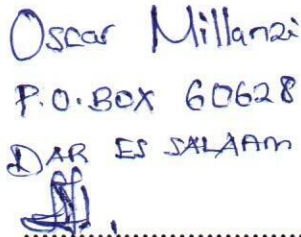 Oscar Millanzi
P.O. BOX 60628
DAR ES SALAAM